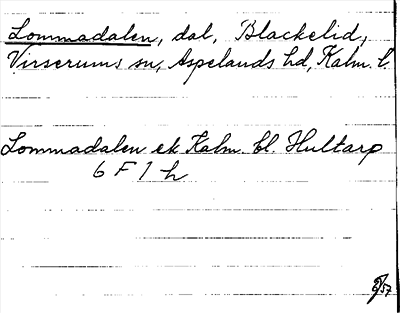 Lommadalen, dal, Blackelid,
Virserums sn, Aspelands hd, Kalm. l.
Lommadalen ek Kalm. bl. Hultarp
6 F 1 h
/57